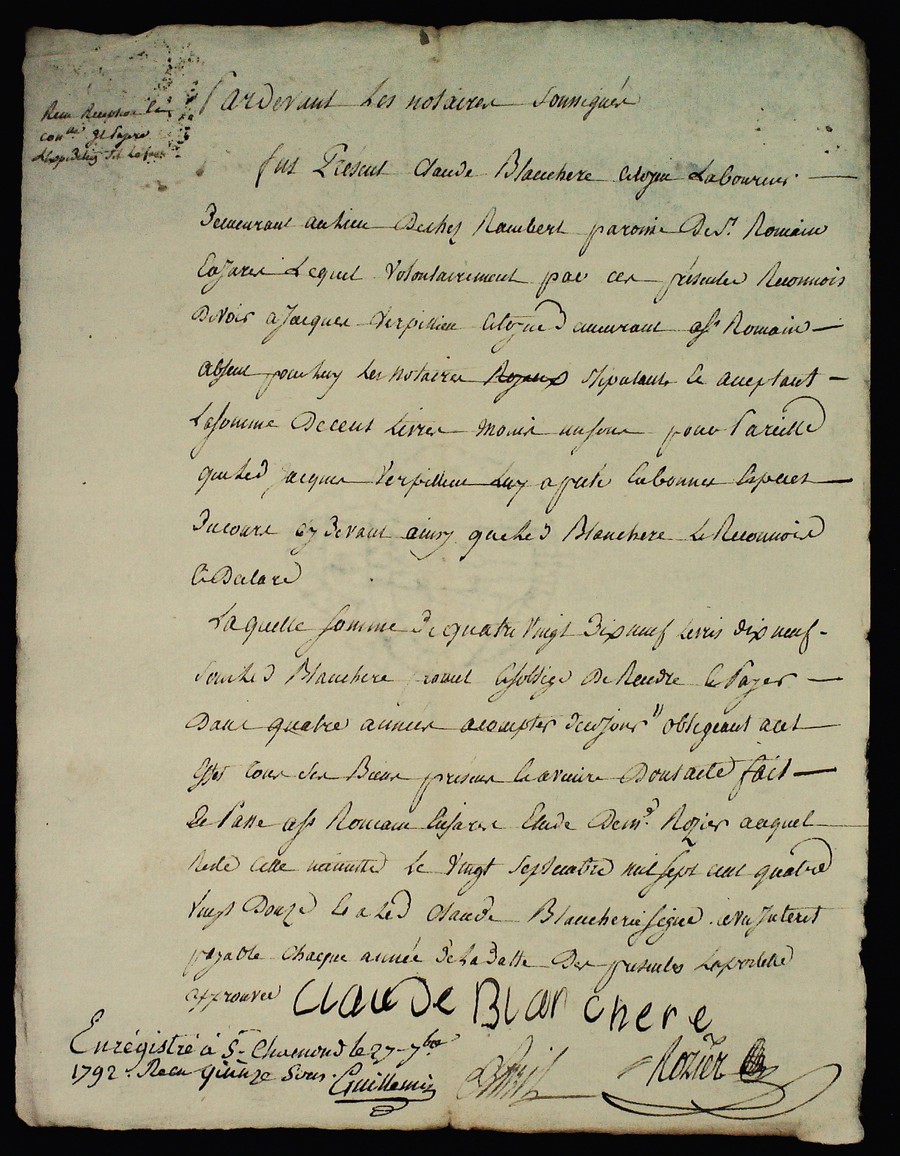 Pardevant Les notaires soussignés
fut Présent Claude Blanchere citoyen Laboureur
Demeurant au lieu De chez Rambert paroisse De St. Romain
En Jarez Lequel volontairement par ces présentes Reconnois
Devoir a Jacques Verpillieu citoyen Demeurant a St Romain
absent pour Luy Les notaires Royaux stipulants et acceptant
La somme De cent Livres moins un sous pour Pareille
que Led Jacques Verpillieu Luy a prété En bonnes Especes
Du cours cy devant ainsy que Led Blanchere Le Reconnoit
Et Declare
Laquelle somme De quatre vingt Dix neuf Livres dix neuf
sous Led Blanchere promet et s'oblige De Rendre et Payer
Dans quatre années a compter De ce jour obligeant a cet
effet tous ses Biens présens et avenirs Dont acte fait
Et Passé a St Romain En Jarez Etude De me. Rozier auquel
Reste cette minutte Le vingt septembre mil sept cent quatre
vingt Douze et a Led Claude Blanchere signé
payable chaque année De La datte Des présentes
approuvée
Claude Blanchere
Enrégistré à St. Chamond le 27 7bre
1792. Recu quinze sous. Guillemin
Rozier